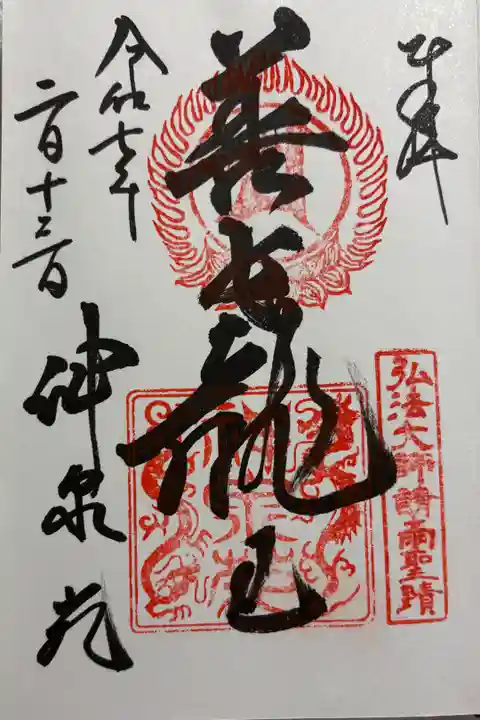 奉拝
弘法大師請雨聖蹟
善女龍王
令和七年
二月十二日
神泉苑